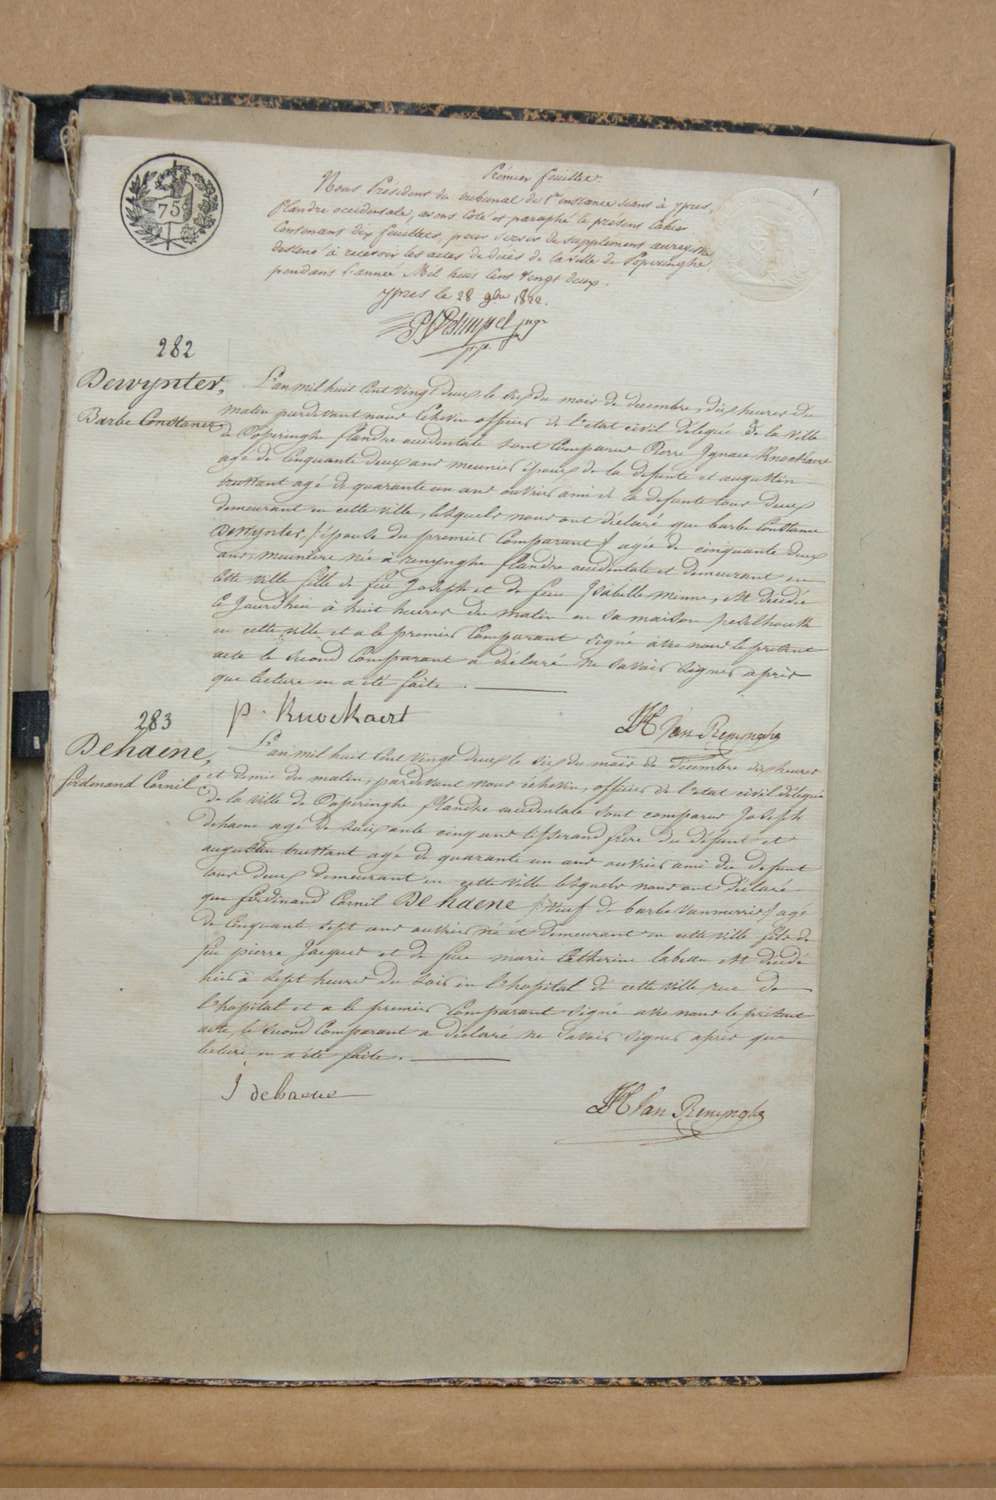 1
75
Prémier feuillet
Nous Président du tribunal de 1re instance séant à Ypres,
flandre occidentale, avons Coté et paraphé le présent Cahier
Contenant dix feuillets, pour servir de supplement au registre
destiné à recevoir les actes de décès de la ville de Poperinghe
pendant l'année Mil huit Cent Vingt deux.
Ypres le 28 9bre 1822.
282
Dewynter,
Barbe Constance
L'an mil huit Cent vingt deux le six du mois de decembre, dix heures du
matin pardevant nous Echevin officier de l'état civil délégué de la ville
de Poperinghe flandre occidentale sont Comparus Pierre Ignace Knockaert
agé de Cinquante deux ans meunier époux de la defunte et augustin
truttant agé de quarante un ans ouvrier ami de la defunte tous deux
demeurant en cette ville, lesquels nous ont déclaré que barbe Constance
Dewynter, (épouse du premier Comparant) agée de cinquante deux
ans, meunière née à renynghe flandre occidentale et demeurant en
cette ville fille de feu Joseph et de feue Isabelle Menne, est décédée
ce Jourdhui à huit heures du matin en sa maison
en cette ville et a le premier Comparant signé avec nous le présent
acte le second Comparant a déclaré ne savoir signer après
que lecture en a été faite.
p. Knockaert
Van Renynghe
283
Dehaene,
ferdinand Cornil
L'an mil huit Cent vingt deux le six du mois de Decembre dix heures
et demie du matin, pardevant nous échevin, officier de l'etat civil délégué
de la ville de Poperinghe flandre occidentale sont comparus Joseph
dehaene agé de soixante cinq ans tisserand frère du défunt et
augustin truttant agé de quarante un ans ouvrier ami du defunt
tous deux demeurant en cette ville lesquels nous ont déclaré
que ferdinand Cornil Dehaene (veuf de barbe vanmerris) agé
de Cinquante sept ans ouvrier né et demeurant en cette ville fils de
feu pierre Jacques et de feue marie Catherine labeau est décédé
hier à sept heures du soir en l'hopital de cette ville rue de
l'hopital et a le premier Comparant signé avec nous le présent
acte, le second Comparant a déclaré ne savoir signer après que
lecture en a été faite.
J dehaene
Van Renynghe